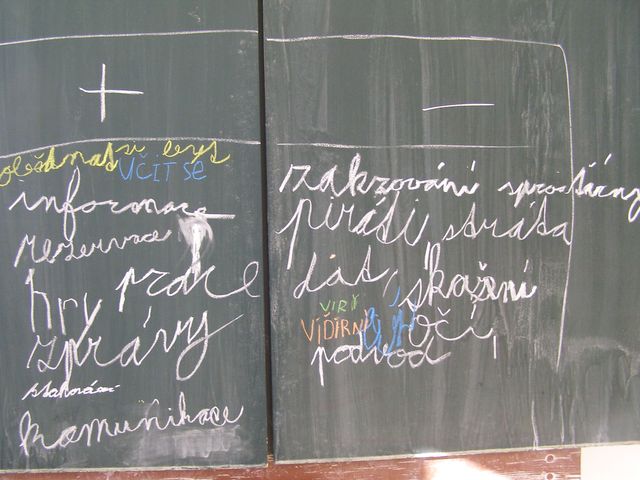 +
objednat si lent
UČIT SE
informace
rezervace
hry práce
zprávy
stahování
komunikace
—
zakzování sprostárny
piráti, stráta
dat, skažení
VIRY
VIDÍRNY očí,
podvod